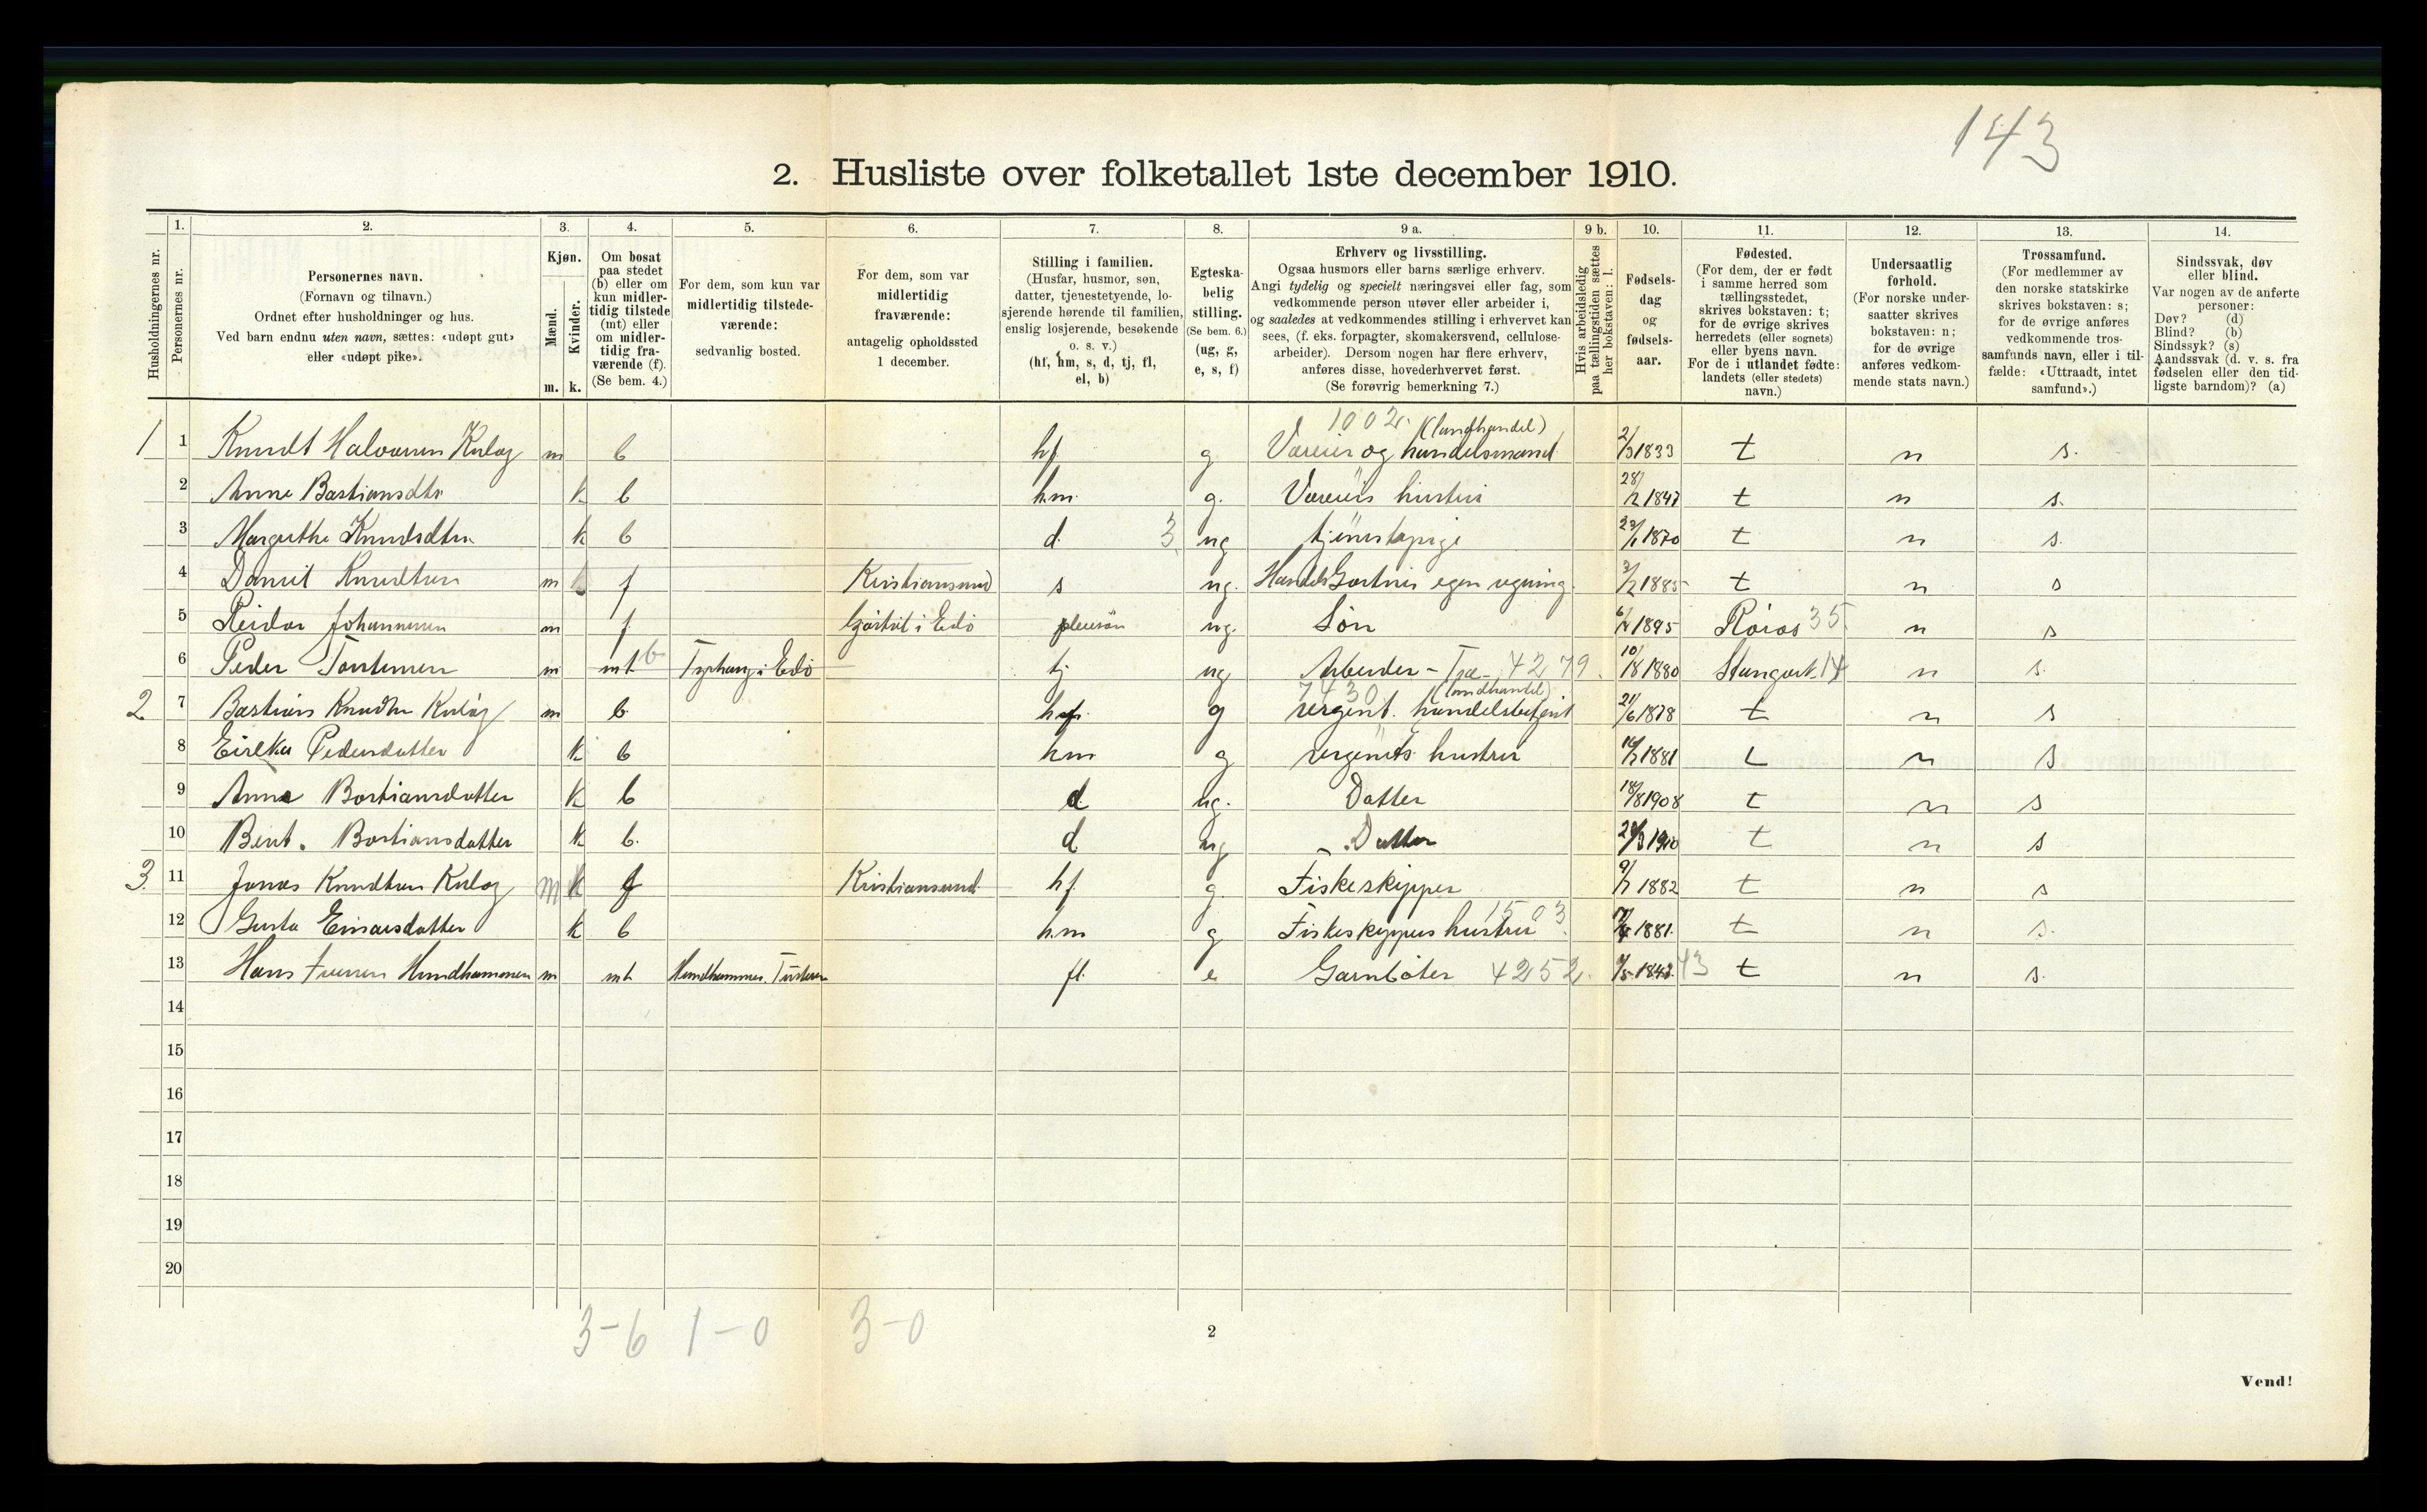 143
2. Husliste over folketallet 1ste december 1910.
1. 2. 3. 4. 5. 6. 7. 8. 9 a. 9 b. 10. 11. 12. 13. 14.
Husholdningernes nr.
Personernes nr.
Personernes navn.
(Fornavn og tilnavn.)
Ordnet efter husholdninger og hus.
Ved barn endnu uten navn, sættes: «udøpt gut»
eller «udøpt pike».
Kjøn.
Mænd.
m.
Kvinder.
k.
Om bosat
paa stedet
(b) eller om
kun midler-
tidig tilstede
(mt) eller
om midler-
tidig fra-
værende (f).
(Se bem. 4.)
For dem, som kun var
midlertidig tilstede-
værende:
sedvanlig bosted.
For dem, som var
midlertidig
fraværende:
antagelig opholdssted
1 december.
Stilling i familien.
(Husfar, husmor, søn,
datter, tjenestetyende, lo-
sjerende hørende til familien,
enslig losjerende, besøkende
o. s. v.)
(hf, hm, s, d, tj, fl,
el, b)
Egteska-
belig
stilling.
(Se bem. 6.)
(ug, g,
e, s, f)
Erhverv og livsstilling.
Ogsaa husmors eller barns særlige erhverv.
Angi tydelig og specielt næringsvei eller fag, som
vedkommende person utøver eller arbeider i,
og saaledes at vedkommendes stilling i erhvervet kan
sees, (f. eks. forpagter, skomakersvend, cellulose-
arbeider). Dersom nogen har flere erhverv,
anføres disse, hovederhvervet først.
(Se forøvrig bemerkning 7.)
Hvis arbeidsledig
paa tællingstiden sættes
her bokstaven: l.
Fødsels-
dag
og
fødsels-
aar.
Fødested.
(For dem, der er født
i samme herred som
tællingsstedet,
skrives bokstaven: t;
for de øvrige skrives
herredets (eller sognets)
eller byens navn.
For de i utlandet fødte:
landets (eller stedets)
navn.)
Undersaatlig
forhold.
(For norske under-
saatter skrives
bokstaven: n;
for de øvrige
anføres vedkom-
mende stats navn.)
Trossamfund.
(For medlemmer av
den norske statskirke
skrives bokstaven: s;
for de øvrige anføres
vedkommende tros-
samfunds navn, eller i til-
fælde: «Uttraadt, intet
samfund».)
Sindssvak, døv
eller blind.
Var nogen av de anførte
personer:
Døv? (d)
Blind? (b)
Sindssyk? (s)
Aandssvak (d. v. s. fra
fødselen eller den tid-
ligste barndom)? (a)
1002. (landhandel)
1 1 Knudt m b hf g Væreier og handelsmand 2/3 1833 t n s.
2 Anne Bastiansdtr k b hm. g. Væreiers hustru 28/12 1847 t n s.
3 Margrethe Knudsdtr. k b d. 3. ug tjenstepige 23/1 1870 t n s.
4 Daniel Knudtsen m f Kristiansund s ug. egen regning. 3/2 1885 t n s
5 Reidar Johannesen m f i Edö pleiesön ug. Sön 1895 Röros 35. n s
6 Peder Torstensen m mt b i Edö tj ug Arbeider - Træ - 4279. 10/8 1880 14 n s.
7430 (landhandel)
2 7 Bastian Knudtsn m b hf. g handelsbetjent 21/6 1878 t n s
8 Pedersdatter k b hm g hustru 1881 t n s
9 Anna Bastiansdatter k b d ug. Datter 18/8 1908 t n s
10 Berit. Bastiansdatter k b. d ug Datter 1910 t n s
3. 11 Jonas Knudtsen m k f Kristiansund hf. g. Fiskeskipper 9/7 1882 t n s
12 Gusta Einarsdatter k b hm g Fiskeskippers hustru 1503. 1881 t n s.
13 Hans Hundhammeren m mt Hundhammer. Tusteren fl. e Garnböter 4252. 43 t n s.
14
15
16
17
18
19
20
3-6 1-0 3-0
2
Vend!